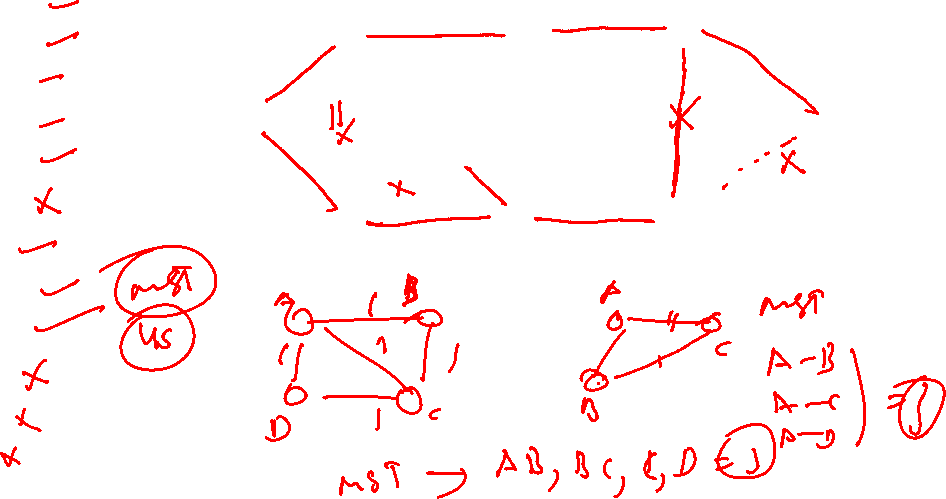 MST
US
A 1 B
1 1 1
D 1 C
A 4 C
B 1
MST
A-B
A-C
A-D
= 3
MST → AB, BC, C, D = 3